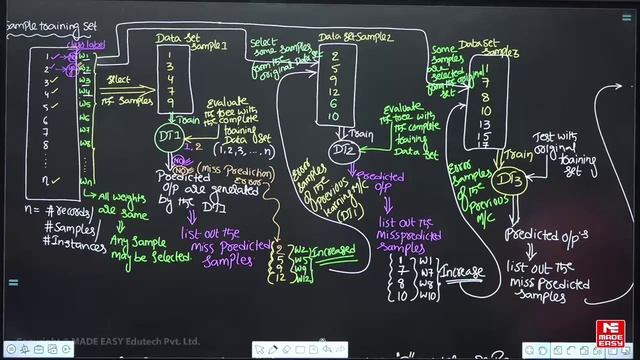 Sample training set
class label
1 w1
2 w2
3 w3
4 w4
5 w5
6 w6
7 w7
8 w8
9
n wn
n = # records/
# Samples/
# Instances
All weights
are same
Any Sample
may be selected.
select
the samples
Data set
sample 1
1
3
4
7
9
Train
DT1
Evaluate
the tree with
the complete
training
Data set
(1, 2, 3, ..., n)
1, 2
NO
NO (miss Prediction)
error
Predicted
O/P are generated
by the DT1
list out the
miss predicted
samples.
2 w2
5 w5
9 w9
12 w12
Increased
Select
some samples
from the
original data set
Data set Sample 2
2
5
9
12
6
10
Train
DT2
Evaluate
the tree with
the complete
training
Data set
Error
Samples
of the
previous
learning M/c
(DT1)
Predicted
O/P
list out the
miss predicted
samples
1 w1
7 w7
8 w8
10 w10
Increase
Some
samples
are
selected
from the original
set
Data set
Sample 3
11
7
8
10
13
15
17
Train
DT3
Test with
original
training
set
Error
Samples
of the
Previous
M/C
Predicted O/P's
list out the
miss predicted
samples
MADE EASY Edutech Pvt. Ltd.
MADE
EASY